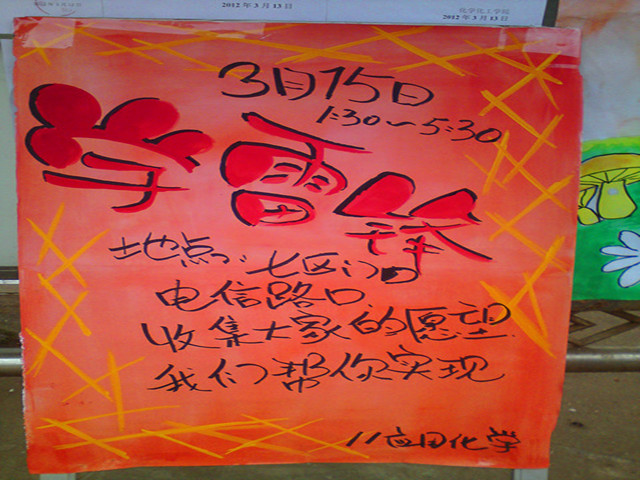 2012年3月13日
化学化工学院
2012年3月13日
3月15日
1:30～5:30
学雷锋
地点:七区门口
电信路口
收集大家的愿望
我们帮你实现
11应用化学